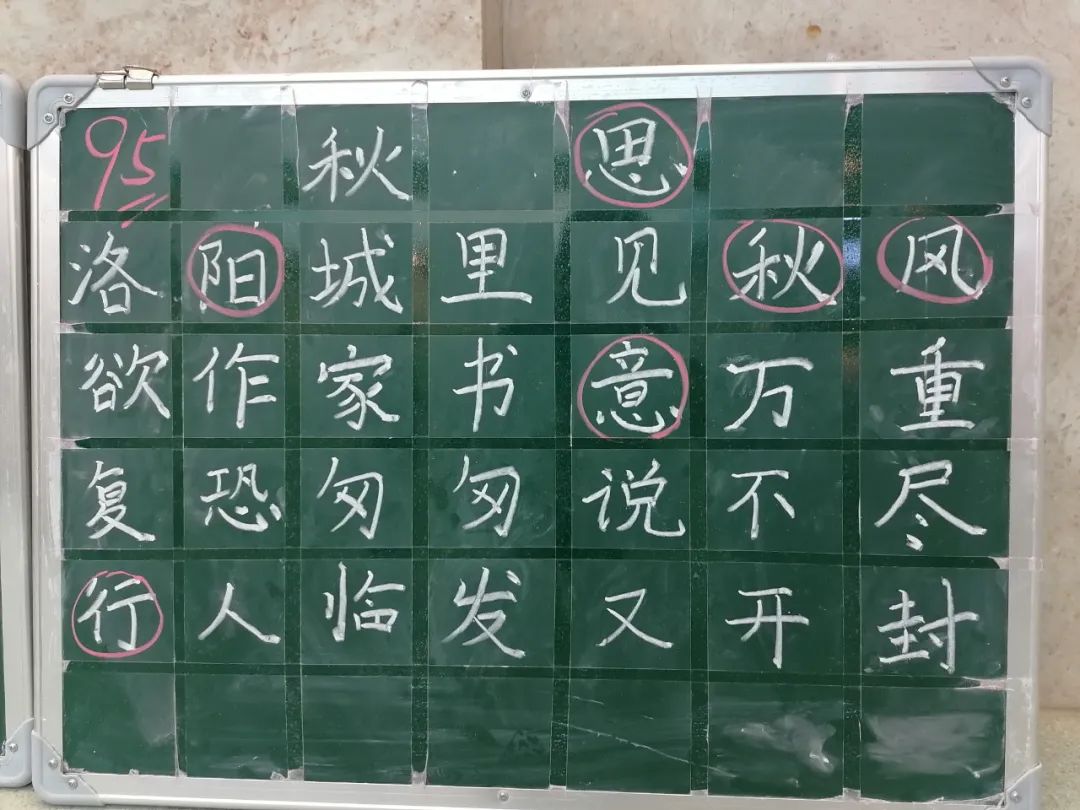 95
秋思
洛阳城里见秋风
欲作家书意万重
复恐匆匆说不尽
行人临发又开封